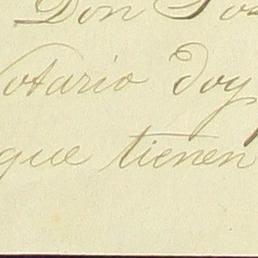 Don Jos
Notario doy
que tienen